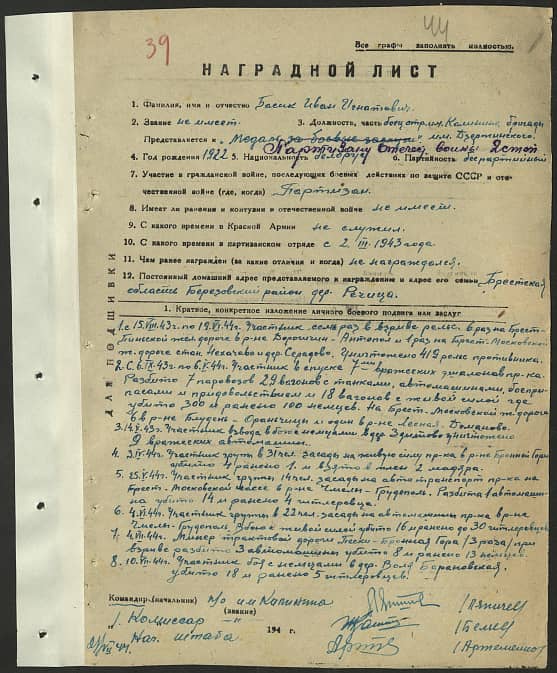 44
39
Все графы заполнять полностью.
НАГРАДНОЙ ЛИСТ
1. Фамилия, имя и отчество Басик Иван Игнатович.
2. Звание не имеет. 3. Должность, часть боец отр. им. Калинина бригады
Представляется к "Медаль за боевые заслуги" им. Дзержинского.
Партизану отечеств. войны 2 степ
4. Год рождения 1922 5. Национальность белорус 6. Партийность беспартийный
7. Участие в гражданской войне, последующих боевых действиях по защите СССР и оте-
чественной войне (где, когда) Партизан.
8. Имеет ли ранения и контузии в отечественной войне не имеет.
9. С какого времени в Красной Армии не служил.
10. С какого времени в партизанском отряде с 2. III. 1943 года
11. Чем ранее награжден (за какие отличия и когда) не награждался.
12. Постоянный домашний адрес представляемого к награждению и адрес его семьи Брестская
область Березовский район дер. Речица.
ДЛЯ ПОДШИВКИ
1. Краткое, конкретное изложение личного боевого подвига или заслуг
1. с 15.VIII.43г. по 19.VI.44г. Участник семь раз в взрыве рельс. 6 раз на Брест-
Пинской жел. дороге в р-не - Антополь и 1 раз на Брест. Московской
ж. дороге стан. Нехачево и дер. Уничтожено 419 рельс противника.
2. С 6.IX.43г. по 6.V.44г. Участник в спуске 7-ми вражеских эшалонов пр-ка.
Разбито 7 паровозов 29 вагонов с танками, автомашинами, боепри-
пасами и продовольствием и 18 вагонов с живой силой где
убито 300 и ранено 100 немцев. На Брест-Московской ж. дороге
6 в р-не Блудень - Оранчицы и один в р-не Лесная - Доманово.
3. 14.V.43г. Участник взвода в бое с немцами в дер. уничтожено
9 вражеских автомашин.
4. 3.IV.44г. Участник групп в 31 чел. засады на живую силу пр-ка в р-не Бронной Горы
убито 4 ранено 1 и взято в плен 2 мадяра.
5. 25.IV.44г. Участник группы 14 чел. засады на авто транспорт пр-ка на
Брест-Московской шассе в р-не - Грудополь. Разбита 1 автомаши-
на убито 14 и ранено 4 гитлеровца.
6. 4.VI.44г. Участник группы в 22 чел. засады на автомашины пр-ка в р-не
- Грудополь. В бое живой силы убито 16 и ранено до 30 гитлеровцев
7. 4.VII.44г. Минер трактовой дороги Пески - Бронная Гора /3 раза/ при
взрыве разбито 3 автомашины убито 8 и ранено 13 немцев.
8. 10.VII.44г. Участник боя с немцами в дер. Воля Барановская.
убито 18 и ранено 5 гитлеровцев.
Командир (начальник) п/о им Калинина /Ляпичев
(звание)
/. Комиссар —"— /Белев
194 г.
Нач. штаба /Артеменков